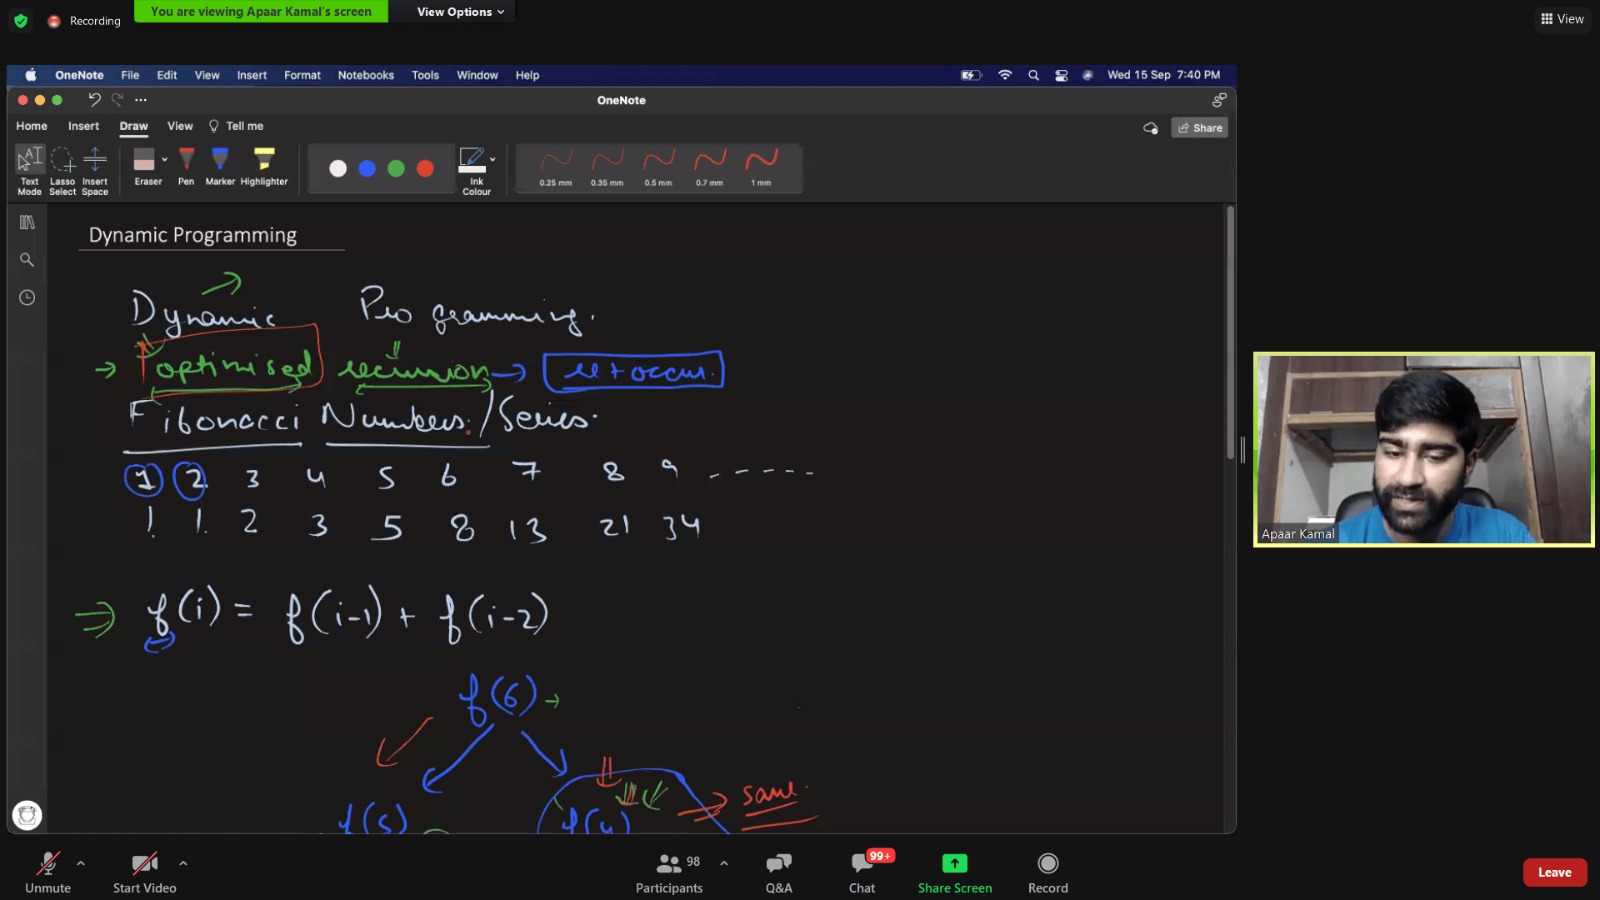 Recording
You are viewing Apaar Kamal's screen
View Options
View
OneNote File Edit View Insert Format Notebooks Tools Window Help
Wed 15 Sep 7:40 PM
OneNote
Home Insert Draw View Tell me
Share
Text Mode
Lasso Select
Insert Space
Eraser
Pen
Marker
Highlighter
Ink Colour
0.25 mm
0.35 mm
0.5 mm
0.7 mm
1 mm
Dynamic Programming
Dynamic Programming.
→ optimised recursion → re + occur.
Fibonacci Numbers./Series.
1 2 3 4 5 6 7 8 9 - - - - - -
1 1. 2 3 5 8 13 21 34
⇒ f(i) = f(i-1) + f(i-2)
f(6) →
f(5) f(4) → same.
Apaar Kamal
Unmute
Start Video
98
Participants
Q&A
99+
Chat
Share Screen
Record
Leave